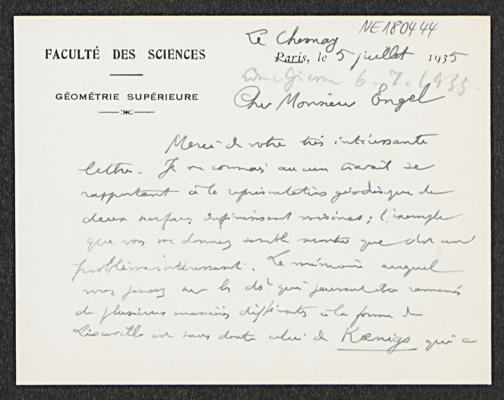 NE180444
Le Chesnay
FACULTÉ DES SCIENCES
Paris, le 5 juillet 1935
6.7.1935
GÉOMÉTRIE SUPÉRIEURE
Cher Monsieur Engel
Merci de votre très intéressante
lettre. Je ne connais aucun travail se
rapportant à la représentation géodésique de
deux surfaces infiniment voisines; l'exemple
que vous me donnez semble montrer que c'est un
problème intéressant. Le mémoire auquel
vous pensez sur les ds² qui peuvent être ramenés
de plusieurs manières différentes à la forme de
Liouville est sans doute celui de Kœnigs qui a